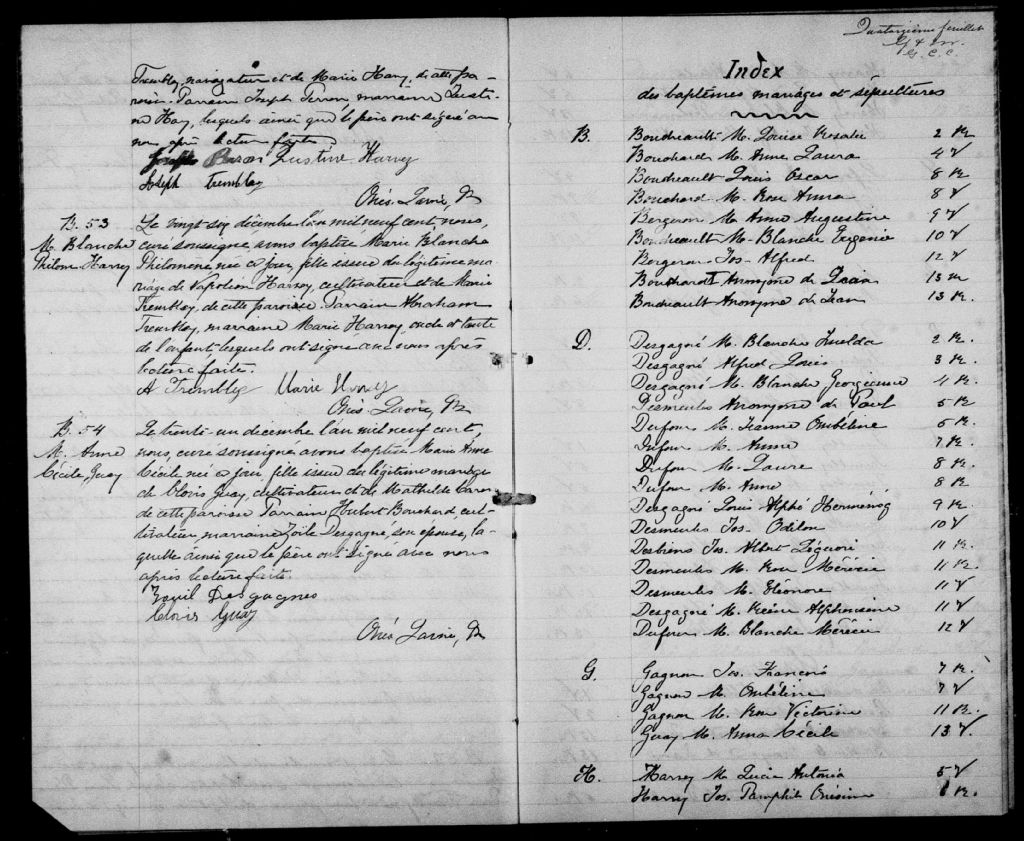 Tremblay, navigateur et de Marie Harvey, de cette pa-
roisse. Parrain Joseph marraine Justi-
ne Harvey, lesquels ainsi que le père ont signé avec
nous après lecture faite.
Joseph Justine Harvey
Joseph Tremblay
Onés. Lavoie, Ptr
B. 53
M. Blanche
Philom. Harvey
Le vingt six décembre l'an mil neuf cent, nous,
curé soussigné avons baptisé Marie Blanche
Philomène née ce jour, fille issue du légitime ma-
riage de Napoléon Harvey, cultivateur et de Marie
Tremblay, de cette paroisse. Parrain Abraham
Tremblay, marraine Marie Harvey, oncle et tante
de l'enfant, lesquels ont signé avec nous après
lecture faite.
A Tremblay Marie Harvey
Onés. Lavoie, Ptr
B. 54
M. Anne
Cécile, Guay
Le trente-un décembre l'an mil neuf cent,
nous, curé soussigné avons baptisé Marie Anne
Cécile née ce jour, fille issue du légitime mariage
de Clovis Guay, cultivateur et de Mathilde Caron
de cette paroisse. Parrain Hubert Bouchard, cul-
tivateur, marraine Zoïle Desgagné, son épouse, la-
quelle ainsi que le père ont signé avec nous
après lecture faite.
Zoyil Desgagnes
Clovis Guay
Onés. Lavoie, Ptr
Quatorzième feuillet
G. C. C.
Index
des baptêmes mariages et sépultures
B. Boudreault M. Louise Rosalie 2 R.
Bouchard M. Anne Laura 4 V
Boudreault Louis Oscar 8 R
Bouchard M. Rose Anna 8 V
Bergeron M. Anne Augustine 9 V
Boudreault M. Blanche Eugénie 10 V
Bergeron Jos. Alfred 12 V
Bouchard Anonyme de 13 R
Boudreault Anonyme de Jean 13 R.
D. Desgagné M. Blanche Imelda 2 R.
Desgagné Alfred Louis 3 R.
Desgagné M. Blanche Georgianna 4 R.
Desmeules Anonyme de Paul 5 R
Dufour M. Jeanne Ombéline 5 R.
Dufour M. Anne 7 R.
Dufour M. Laure 8 R.
Dufour M. Anne 8 R
Desgagné Louis Alphé Herménég 9 R.
Desmeules Jos. Odilon 10 V
Desbiens Jos. Albert Léguori 11 R.
Desmeules M. Rose Mérécie 11 R.
Desmeules M. Éléonore 11 V
Desgagné M. Reine Alphonsine 11 V
Dufour M. Blanche Mérécie 12 V
G. Gagnon Jos. François 7 R.
Gagnon M. Ombéline 7 V
Gagnon M. Rose Victorine 11 R.
Guay M. Anna Cécile 13 V.
H. Harvey M. Lucie Antonia 5 V
Harvey Jos. Pamphile Onésime 1 R.